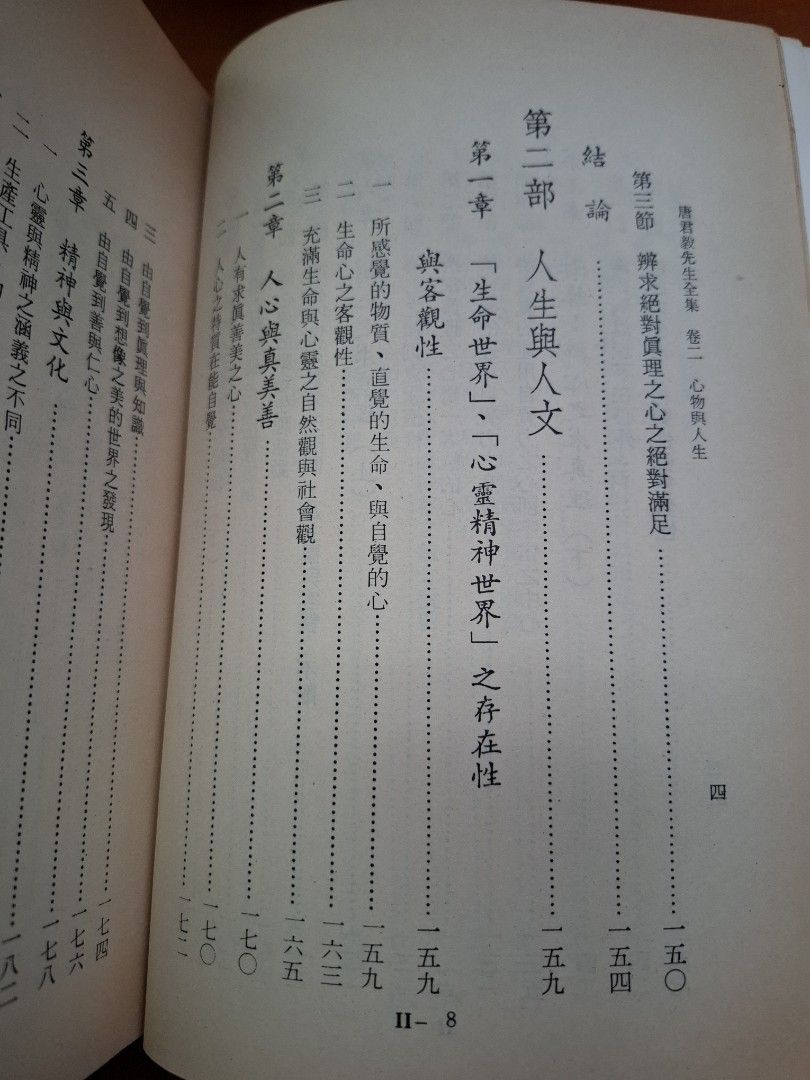 唐君毅先生全集　卷二　心物與人生
四
第三節　辨求絕對眞理之心之絕對滿足……一五〇
結　論……一五四
第二部　人生與人文……一五九
第一章　「生命世界」、「心靈精神世界」之存在性
與客觀性……一五九
一　所感覺的物質、直覺的生命、與自覺的心……一五九
二　生命心之客觀性……一六三
三　充滿生命與心靈之自然觀與社會觀……一六五
第二章　人心與真美善……一七〇
一　人有求眞善美之心……一七〇
二　人心之特質在能自覺……一七二
II— 8
三　由自覺到眞理與知識……一七四
四　由自覺到想像之美的世界之發現……一七六
五　由自覺到善與仁心……一七八
第三章　精神與文化
一　心靈與精神之涵義之不同……一八二
二　生產工具